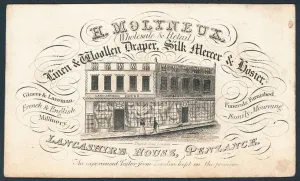 H. MOLYNEUX.
Wholesale & Retail
Linen & Woollen Draper, Silk Mercer & Hosier.
Glover & Laceman.
French & English
Millinery.
Funerals Furnished.
Family Mourning
LANCASHIRE HOUSE, PENZANCE.
An experienced Tailor from London kept on the premises.